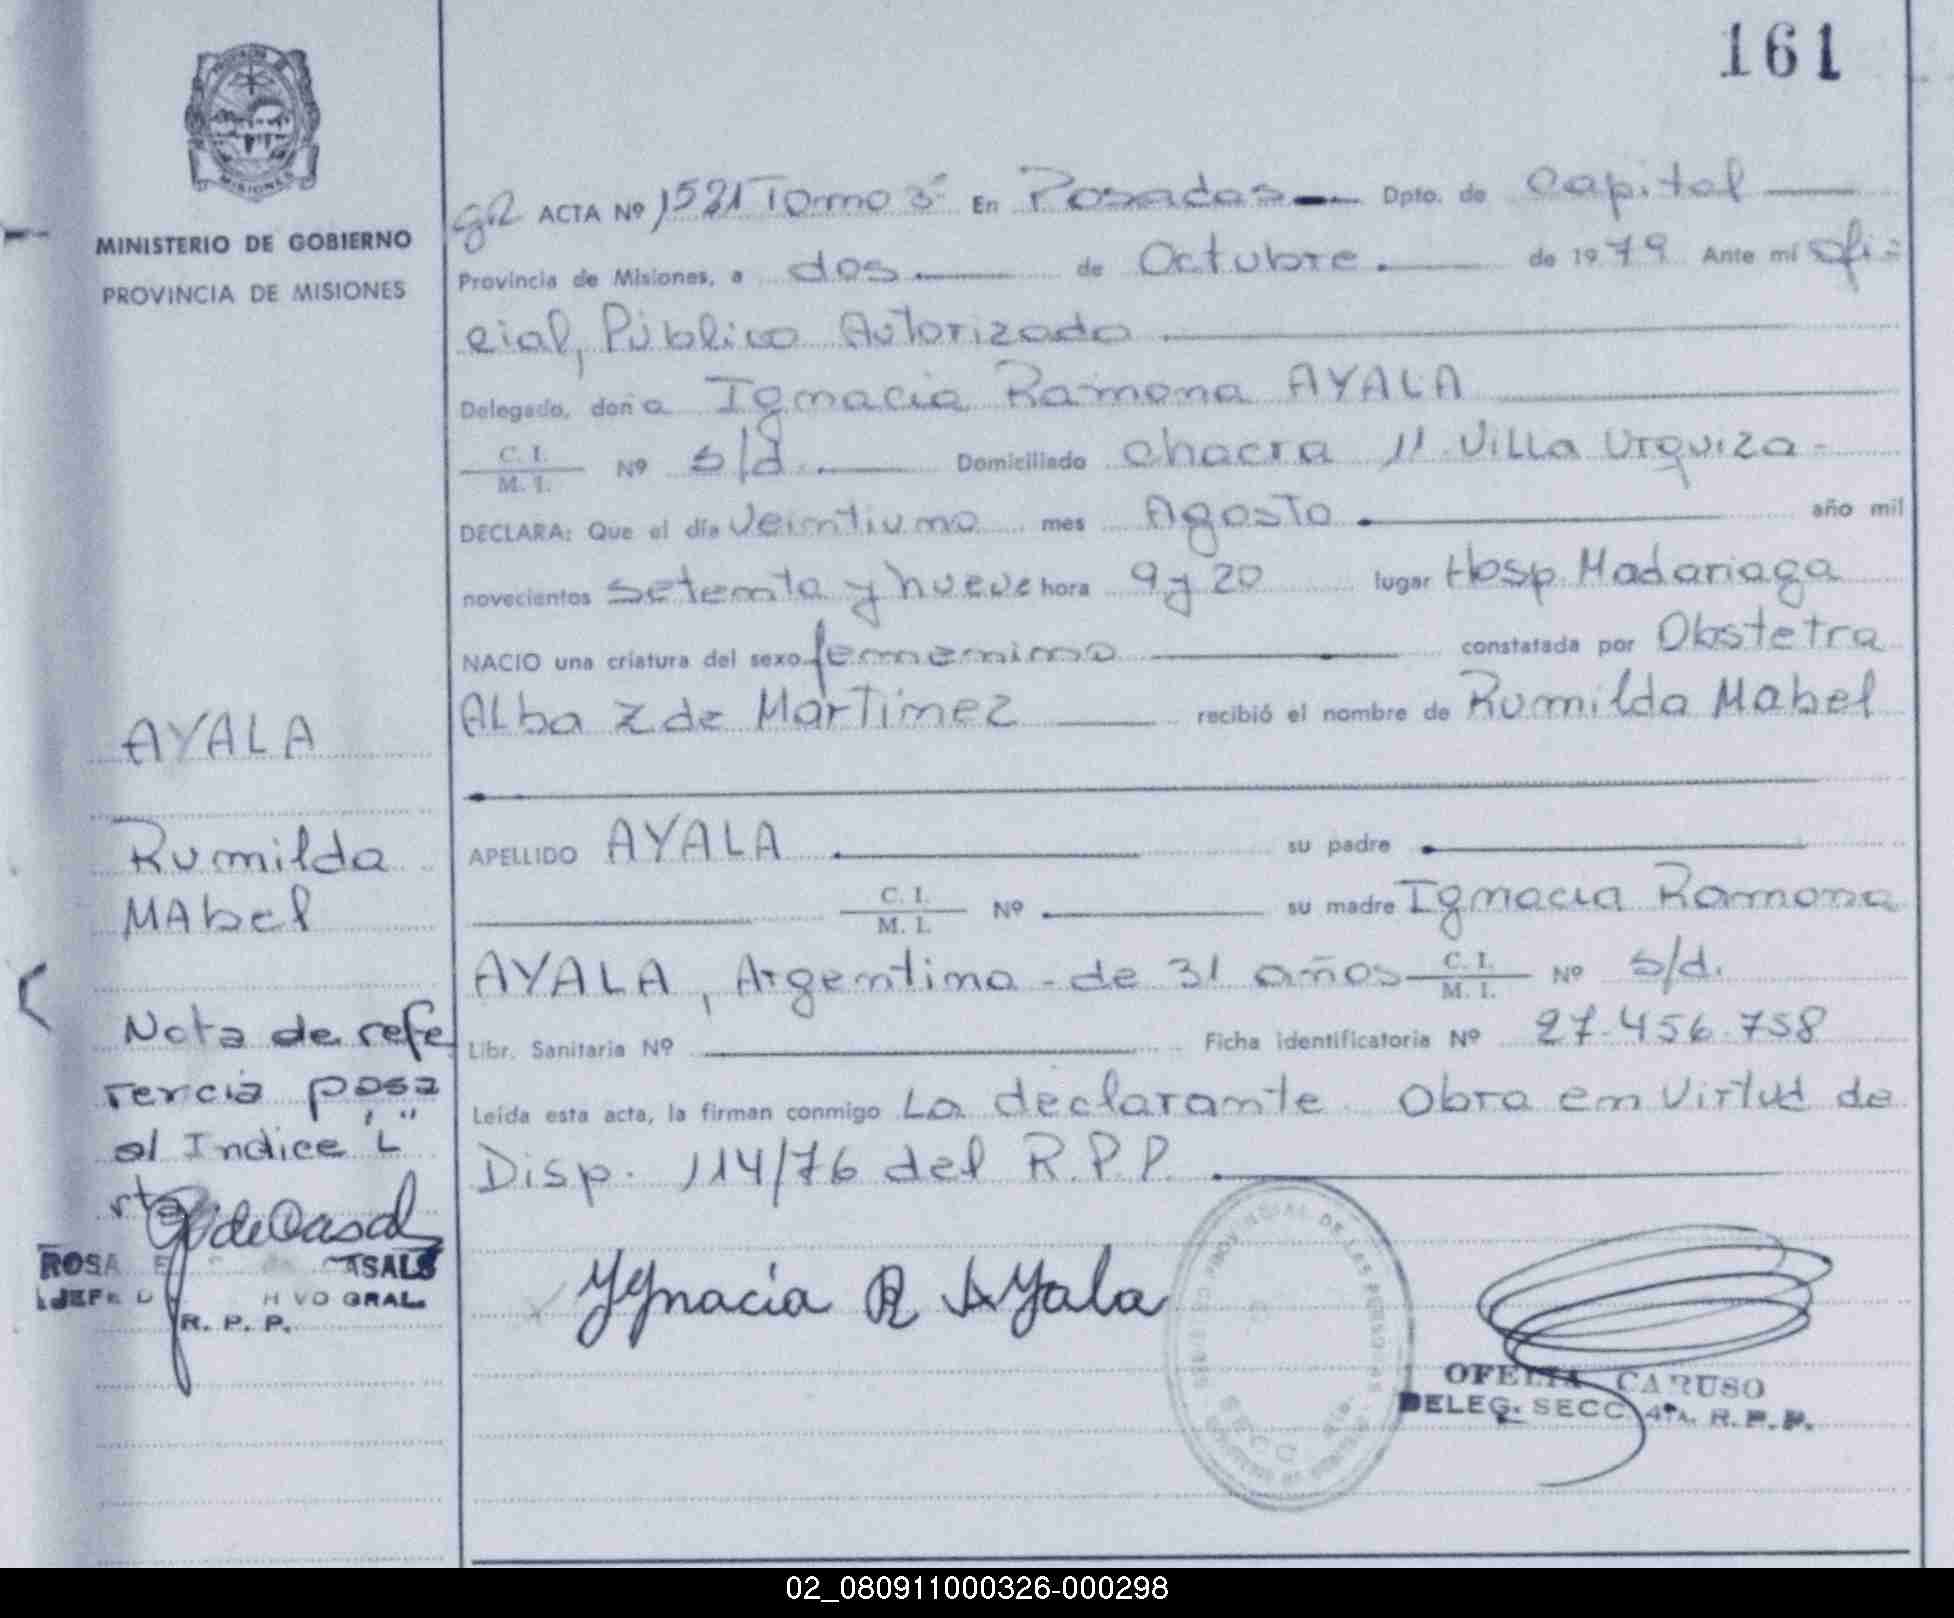 161
MISIONES
MINISTERIO DE GOBIERNO
PROVINCIA DE MISIONES
ACTA Nº 1521 Tomo 3º En Posadas Dpto. de Capital
Provincia de Misiones, a dos de Octubre de 1979 Ante mi Ofi=
cial, Público Autorizado
Delegado, doña Ignacia Ramona AYALA
C. I.
M. I. Nº s/d. Domiciliado chacra 11 Villa Urquiza -
DECLARA: Que el día veintiuno mes Agosto año mil
novecientos setenta y nueve hora 9 y 20 lugar Hosp. Madariaga
NACIO una criatura del sexo femenino constatada por Obstetra
Alba Z de Martinez recibió el nombre de Rumilda Mabel
APELLIDO AYALA su padre
C. I.
M. I. Nº su madre Ignacia Ramona
AYALA, Argentina - de 31 años C. I.
M. I. Nº s/d.
Libr. Sanitaria Nº Ficha identificatoria Nº 27.456.758
Leída esta acta, la firman conmigo La declarante. Obra en Virtud de
Disp. 114/76 del R.P.P.
Ygnacia R Ayala
OFELIA CARUSO
DELEG. SECC. 4TA. R.P.P.
AYALA
Rumilda
MAbel
Nota de refe
rencia pasa
al Indice "L"
ROSA
R. P. P.
02_080911000326-000298